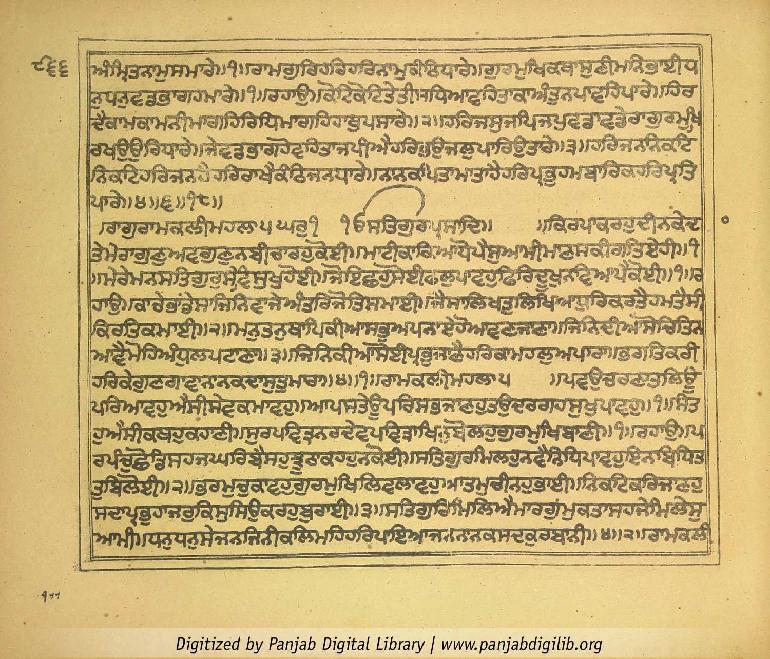 ੮੬੬
ਅੰਮ੍ਰਿਤਨਾਮੁਸਮਾਰੇ॥੧॥ਰਾਮਗੁਰਿਹਰਿਹਰਿਨਾਮੁਕੰਠਿਧਾਰੇ॥ਗੁਰਮੁਖਿਕਥਾਸੁਣੀਮਨਿਭਾਈਧ
ਨੁਧਨੁਵਡਭਾਗਹਮਾਰੇ॥੧॥ਰਹਾਉ॥ਕੋਟਿਕੋਟਿਤੇਤੀਸਧਿਆਵਹਿਤਾਕਾਅੰਤੁਨਪਾਵਹਿਪਾਰੇ॥ਹਿਰ
ਦੈਕਾਮਕਾਮਨੀਮਾਗਹਿਰਿਧਿਮਾਗਹਿਹਾਥੁਪਸਾਰੇ॥੨॥ਹਰਿਜਸੁਜਪਿਜਪੁਵਡਾਵਡੇਰਾਗੁਰਮੁਖਿ
ਰਖਉਉਰਿਧਾਰੇ॥ਜੇਵਡਭਾਗਹੋਵਹਿਤਾਜਪੀਐਹਰਿਭਉਜਲੁਪਾਰਿਉਤਾਰੇ॥੩॥ਹਰਿਜਨਨਿਕਟਿ
ਨਿਕਟਿਹਰਿਜਨਹੈਹਰਿਰਾਖੈਕੰਠਿਜਨਧਾਰੇ॥ਨਾਨਕਪਿਤਾਮਾਤਾਹੈਹਰਿਪ੍ਰਭੁਹਮਬਾਰਿਕਹਰਿਪ੍ਰਤਿ
ਪਾਰੇ॥੪॥੬॥੧੮॥
ਰਾਗੁਰਾਮਕਲੀਮਹਲਾ੫ ਘਰੁ੧ ੴਸਤਿਗੁਰਪ੍ਰਸਾਦਿ॥ ॥ਕਿਰਪਾਕਰਹੁਦੀਨਕੇਦਾ
ਤੇਮੇਰਾਗੁਣੁਅਵਗਣੁਨਬੀਚਾਰਹੁਕੋਈ॥ਮਾਟੀਕਾਕਿਆਧੋਪੈਸੁਆਮੀਮਾਣਸਕੀਗਤਿਏਹੀ॥੧
॥ਮੇਰੇਮਨਸਤਿਗੁਰੁਸੇਵਿਸੁਖੁਹੋਈ॥ਜੋਇਛਹੁਸੋਈਫਲੁਪਾਵਹੁਫਿਰਿਦੂਖੁਨਵਿਆਪੈਕੋਈ॥੧॥ਰ
ਹਾਉ॥ਕਾਚੇਭਾਡੇਸਾਜਿਨਿਵਾਜੇਅੰਤਰਿਜੋਤਿਸਮਾਈ॥ਜੈਸਾਲਿਖਤੁਲਿਖਿਆਧੁਰਿਕਰਤੈਹਮਤੈਸੀ
ਕਿਰਤਿਕਮਾਈ॥੨॥ਮਨੁਤਨੁਥਾਪਿਕੀਆਸਭੁਅਪਨਾਏਹੋਆਵਣਜਾਣਾ॥ਜਿਨਿਦੀਆਸੋਚਿਤਿਨ
ਆਵੈਮੋਹਿਅੰਧੁਲਪਟਾਣਾ॥੩॥ਜਿਨਿਕੀਆਸੋਈਪ੍ਰਭੁਜਾਣੈਹਰਿਕਾਮਹਲੁਅਪਾਰਾ॥ਭਗਤਿਕਰੀ
ਹਰਿਕੇਗੁਣਗਾਵਾਨਾਨਕਦਾਸੁਤੁਮਾਰਾ॥੪॥੧॥ਰਾਮਕਲੀਮਹਲਾ੫ ॥ਪਵਹੁਚਰਣਾਤਲਿਊ
ਪਰਿਆਵਹੁਐਸੀਸੇਵਕਮਾਵਹੁ॥ਆਪਸਤੇਊਪਰਿਸਭਜਾਣਹੁਤਉਦਰਗਹਸੁਖੁਪਾਵਹੁ॥੧॥ਸੰਤ
ਹੁਐਸੀਕਥਹੁਕਹਾਣੀ॥ਸੁਰਪਵਿਤ੍ਰਨਰਦੇਵਪਵਿਤ੍ਰਾਖਿਨੁਬੋਲਹੁਗੁਰਮੁਖਿਬਾਣੀ॥੧॥ਰਹਾਉ॥ਪ
ਰਪੰਚੁਛੋਡਿਸਹਜਘਰਿਬੈਸਹੁਝੂਠਾਕਹਹੁਨਕੋਈ॥ਸਤਿਗੁਰਮਿਲਹੁਨਵੈਨਿਧਿਪਾਵਹੁਇਨਬਿਧਿਤ
ਤੁਬਿਲੋਈ॥੨॥ਭਰਮੁਚੁਕਾਵਹੁਗੁਰਮੁਖਿਲਿਵਲਾਵਹੁਆਤਮੁਚੀਨਹੁਭਾਈ॥ਨਿਕਟਿਕਰਿਜਾਣਹੁ
ਸਦਾਪ੍ਰਭੁਹਾਜਰੁਕਿਸੁਸਿਉਕਰਹੁਬੁਰਾਈ॥੩॥ਸਤਿਗੁਰਿਮਿਲਿਐਮਾਰਗੁਮੁਕਤਾਸਹਜੇਮਿਲੇਸੁ
ਆਮੀ॥ਧਨੁਧਨੁਸੇਜਨਜਿਨੀਕਲਿਮਹਿਹਰਿਪਾਇਆਜਨਨਾਨਕਸਦਕੁਰਬਾਨੀ॥੪॥੨॥ਰਾਮਕਲੀ
Digitized by Panjab Digital Library | www.panjabdigilib.org